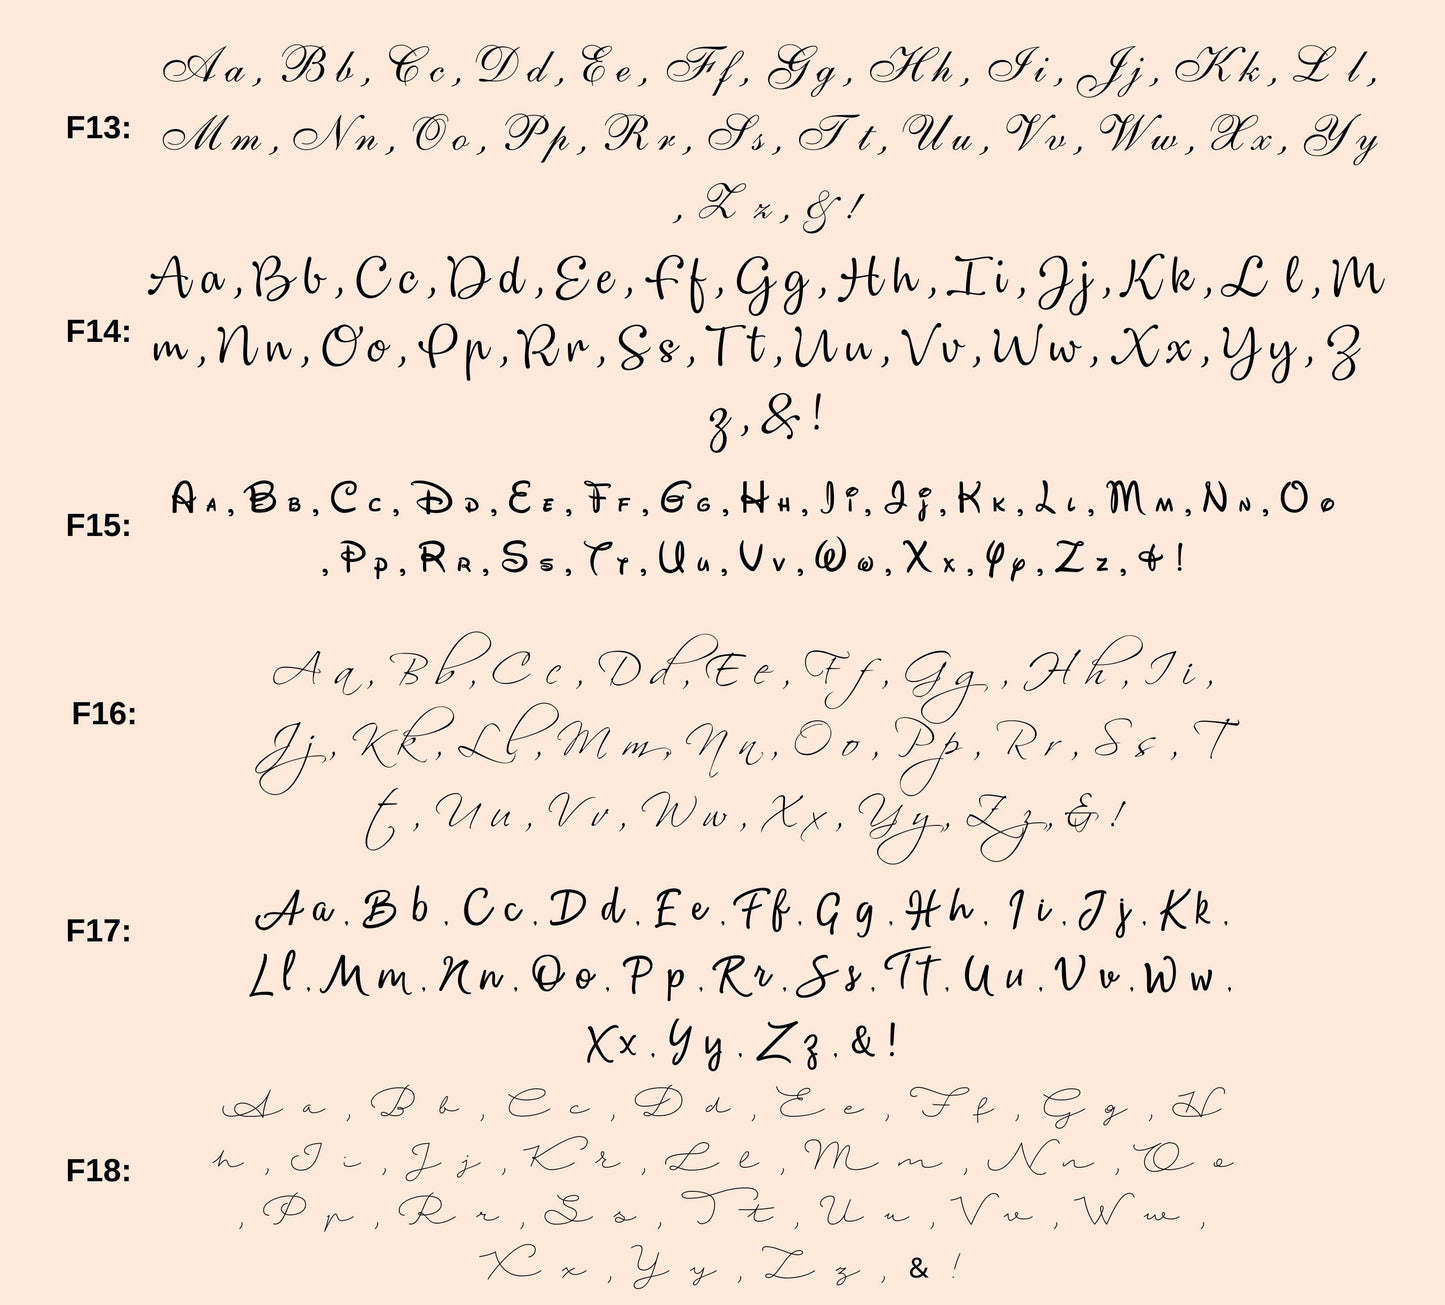 Aa, Bb, Cc, Dd, Ee, Ff, Gg, Hh, Ii, Jj, Kk, L l,
F13: Mm, Nn, Oo, Pp, Rr, Ss, T t, Uu, Vv, Ww, Xx, Yy
, Z z, & !
Aa, Bb, Cc, Dd, Ee, Ff, Gg, Hh, Ii, Jj, Kk, L l, M
F14: m, Nn, Oo, Pp, Rr, Ss, Tt, Uu, Vv, Ww, Xx, Yy, Z
z, & !
F15: Aa, Bb, Cc, Dd, Ee, Ff, Gg, Hh, Ii, Jj, Kk, Ll, Mm, Nn, Oo
, Pp, Rr, Ss, Tt, Uu, Vv, Ww, Xx, Yy, Zz, & !
Aa, Bb, Cc, Dd, Ee, Ff, Gg, Hh, Ii,
F16: Jj, Kk, Ll, Mm, Nn, Oo, Pp, Rr, Ss, T
t, Uu, Vv, Ww, Xx, Yy, Zz, & !
F17: Aa . Bb . Cc . Dd . Ee . Ff . Gg . Hh . Ii . Jj . Kk .
Ll . Mm . Nn . Oo . Pp . Rr . Ss . Tt . Uu . Vv . Ww .
Xx . Yy . Zz . & !
A a , B b , C c , D d , E e , F f , G g , H
F18: h , I i , J j , K k , L l , M m , N n , O o
, P p , R r , S s , T t , U u , V v , W w ,
X x , Y y , Z z , & !